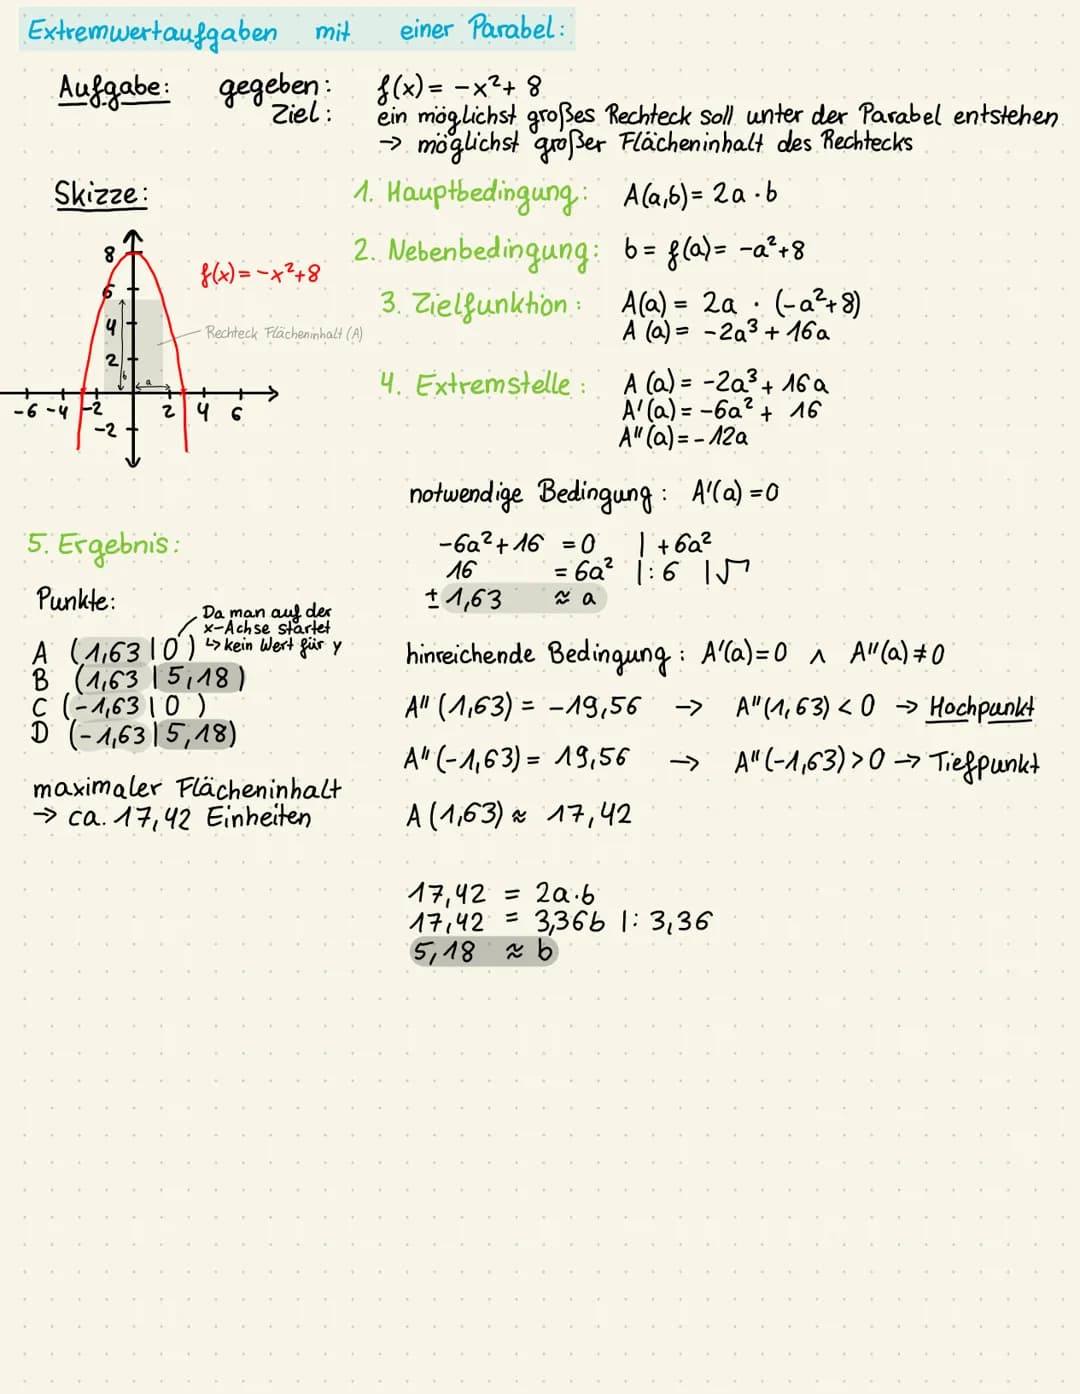 Extremwertaufgaben mit einer Parabel:
Aufgabe: gegeben: f(x) = -x²+ 8
Ziel: ein möglichst großes Rechteck soll unter der Parabel entstehen
→ möglichst großer Flächeninhalt des Rechtecks
Skizze:
8
6
4
2
-2
-6 -4 -2 2 4 6
b
a
f(x) = -x²+8
Rechteck Flächeninhalt (A)
1. Hauptbedingung: A(a,b) = 2a · b
2. Nebenbedingung: b = f(a) = -a²+8
3. Zielfunktion: A(a) = 2a · (-a²+8)
A (a) = -2a³ + 16a
4. Extremstelle: A (a) = -2a³ + 16a
A'(a) = -6a² + 16
A''(a) = - 12a
notwendige Bedingung: A'(a) = 0
-6a² + 16 = 0 | +6a²
16 = 6a² |: 6 |√
± 1,63 ≈ a
hinreichende Bedingung: A'(a)=0 ∧ A''(a) ≠ 0
A'' (1,63) = -19,56 → A''(1,63) < 0 → Hochpunkt
A'' (-1,63) = 19,56 → A''(-1,63) > 0 → Tiefpunkt
A (1,63) ≈ 17,42
17,42 = 2a·b
17,42 = 3,36b |: 3,36
5,18 ≈ b
5. Ergebnis:
Punkte:
Da man auf der
x-Achse startet
↳ kein Wert für y
A (1,63 | 0)
B (1,63 | 5,18)
C (-1,63 | 0 )
D (-1,63 | 5,18)
maximaler Flächeninhalt
→ ca. 17,42 Einheiten